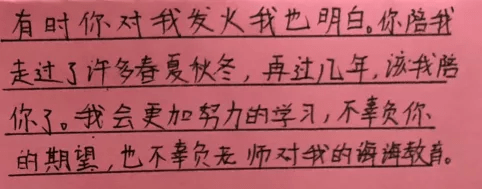 有时你对我发火我也明白。你陪我
走过了许多春夏秋冬，再过几年，该我陪
你了。我会更加努力的学习，不辜负你
的期望，也不辜负老师对我的海海教育。